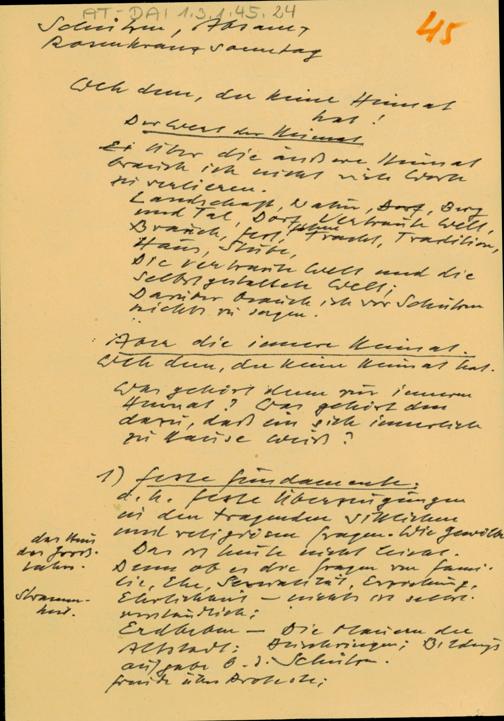 AT-DAI 1.3.1.45.24
45
Schützen, Absam,
Rosenkranz Sonntag
Weh dem, der keine Heimat
hat!
Der Wert der Heimat
Über die äussere Heimat
brauch ich nicht viele Worte
zu verlieren.
Landschaft, Natur, Dorf, Berg
und Tal, Dorf, Vertraute Welt,
Brauch, Fest, Tracht, Tradition,
Haus, Stube,
Die vertraute Welt und die
selbstgestaltete Welt;
Darüber brauch ich vor Schützen
nichts zu sagen.
Aber die innere Heimat.
Weh dem, der keine Heimat hat.
Was gehört denn zur inneren
Heimat? Was gehört denn
dazu, daß ein sich innerlich
zu Hause weiß?
1) Feste Fundamente:
d.h. feste Überzeugungen
in den tragenden sittlichen
und religiösen Fragen.
Das ist heute nicht leicht.
Denn ob es die Fragen von Fami-
lie, Ehe, Sexualität, Erziehung,
Ehrlichkeit – nichts ist selbst-
verständlich;
das Haus
der Groß-
Erdbeben – Die Mauern der
Altstadt:
aufgabe b. d. Schützen.